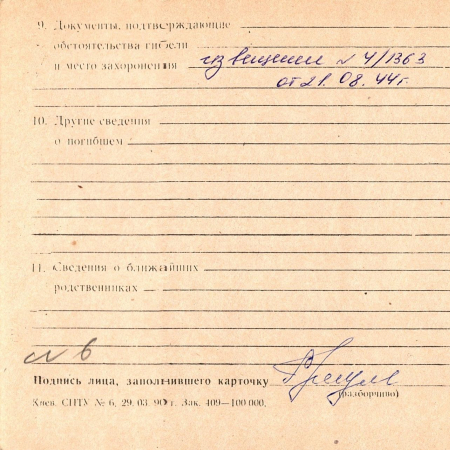 9. Документы, подтверждающие
обстоятельства гибели
и место захоронения извещение № 4/1363
от 21.08.44г.
10. Другие сведения
о погибшем
11. Сведения о ближайших
родственниках
№ 6
Подпись лица, заполнившего карточку
(разборчиво)
Киев. СПТУ № 6. 29. 03. 90 г. Зак. 409—100 000.